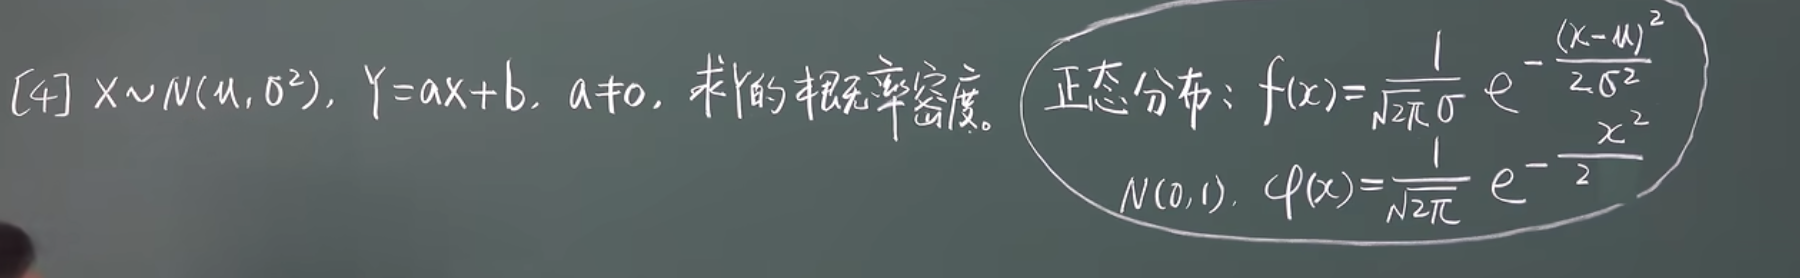 [4] X~N(μ,σ²), Y=aX+b, a≠0, 求Y的概率密度。
正态分布: f(x)=\frac{1}{\sqrt{2π}σ} e^{-\frac{(x-μ)²}{2σ²}}
N(0,1). φ(x)=\frac{1}{\sqrt{2π}} e^{-\frac{x²}{2}}